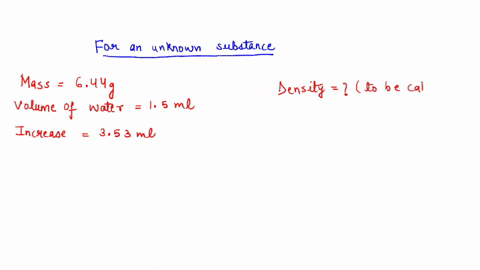 For an unknown substance
Mass = 6.44g
Density = ? ( to be cal
Volume of water = 1.5 ml
Increase = 3.53 ml